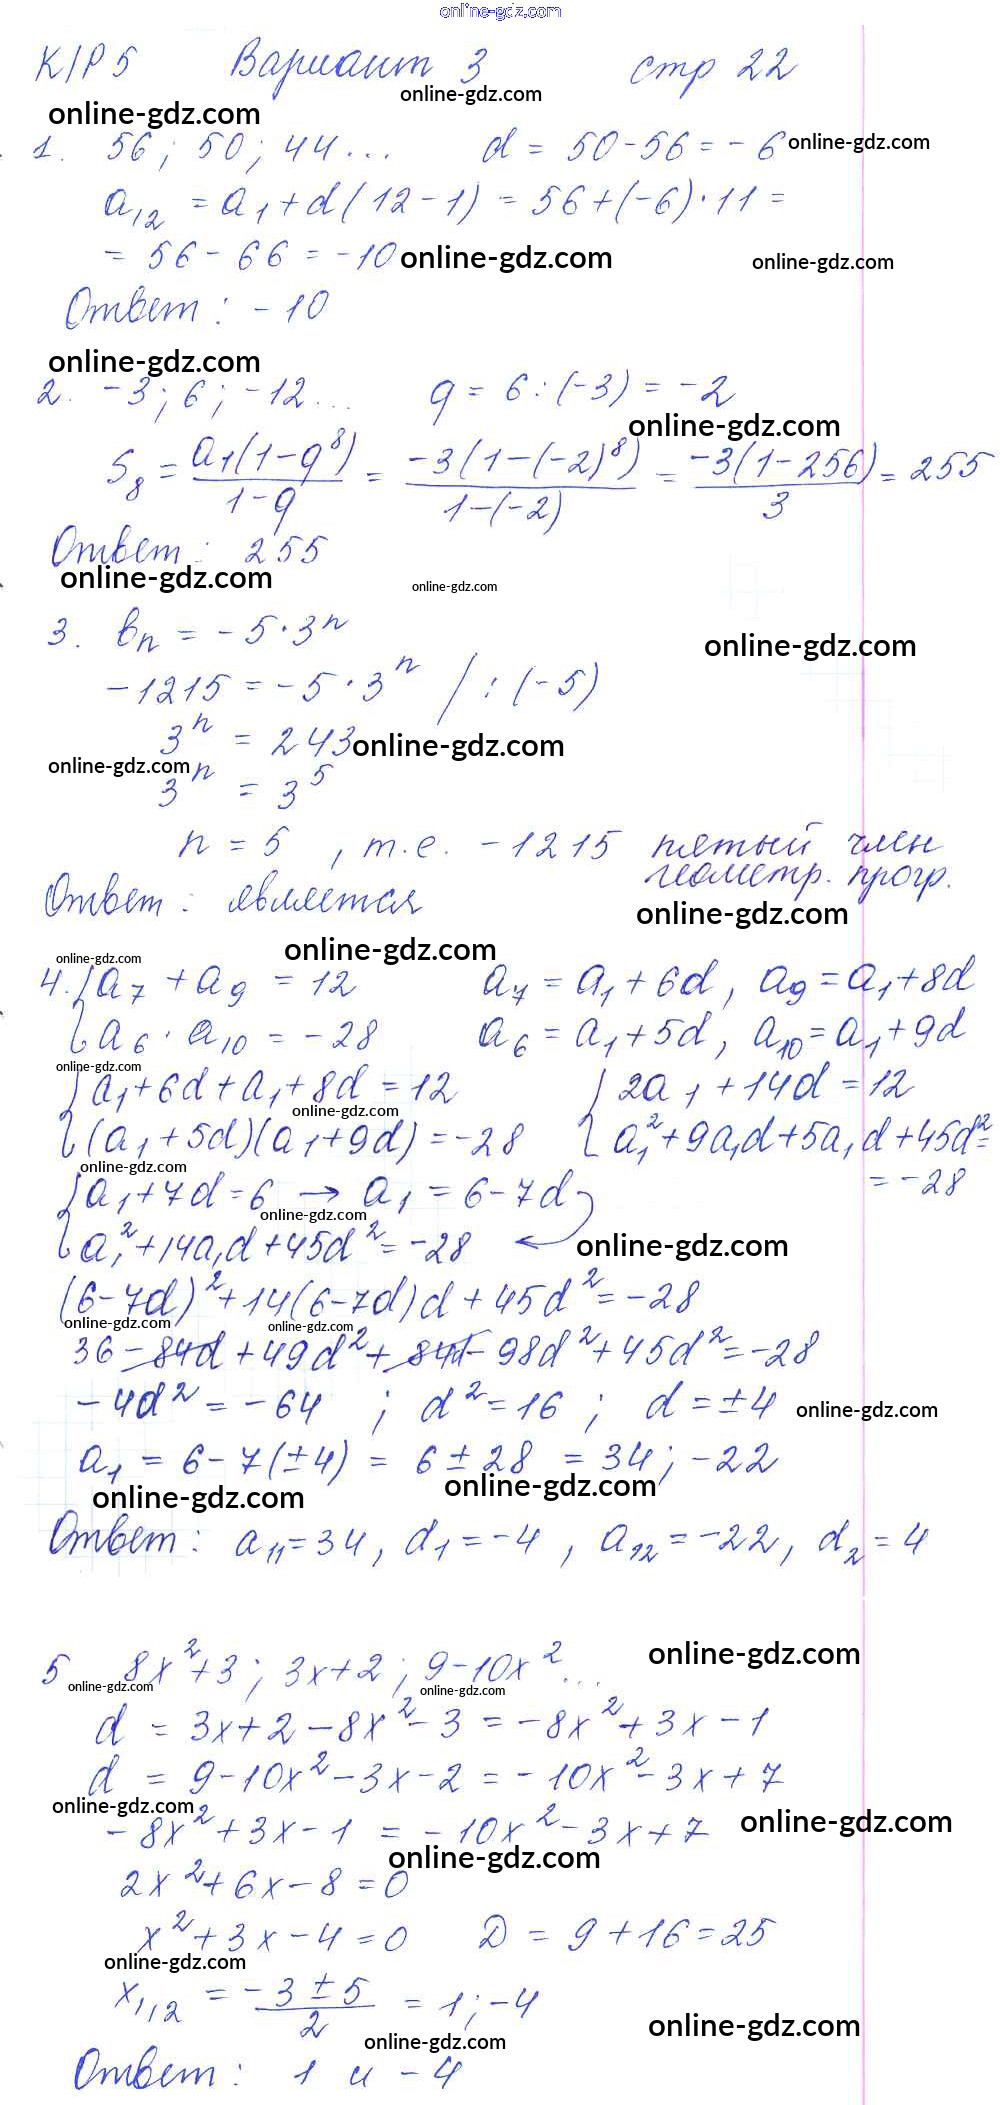 online-gdz.com
К/Р 5 Вариант 3 стр 22
online-gdz.com online-gdz.com
1. 56; 50; 44... d = 50-56 = -6 online-gdz.com
a₁₂ = a₁+d(12-1) = 56+(-6)·11 =
= 56-66 = -10 online-gdz.com online-gdz.com
Ответ: -10
online-gdz.com
2. -3; 6; -12... q = 6:(-3) = -2
online-gdz.com
S₈ = a₁(1-q⁸)/1-q = -3(1-(-2)⁸)/1-(-2) = -3(1-256)/3 = 255
Ответ: 255
online-gdz.com online-gdz.com
3. bₙ = -5·3ⁿ
online-gdz.com
-1215 = -5·3ⁿ /:(-5)
3ⁿ = 243 online-gdz.com
online-gdz.com
3ⁿ = 3⁵
n = 5, т.е. -1215 пятый член
геометр. прогр.
Ответ: является
online-gdz.com
online-gdz.com
online-gdz.com
4. {a₇ + a₉ = 12 a₇ = a₁+6d, a₉ = a₁+8d
a₆ · a₁₀ = -28 a₆ = a₁+5d, a₁₀ = a₁+9d
online-gdz.com
{a₁+6d+a₁+8d = 12 {2a₁+14d = 12
online-gdz.com
(a₁+5d)(a₁+9d) = -28 a₁²+9a₁d+5a₁d+45d² =
= -28
online-gdz.com
{a₁+7d = 6 → a₁ = 6-7d
online-gdz.com
a₁²+14a₁d+45d² = -28 ← online-gdz.com
(6-7d)²+14(6-7d)d+45d² = -28
online-gdz.com online-gdz.com
36-84d+49d²+84d-98d²+45d² = -28
-4d² = -64 ; d² = 16 ; d = ±4 online-gdz.com
a₁ = 6-7(±4) = 6±28 = 34; -22
online-gdz.com online-gdz.com
Ответ: a₁₁ = 34, d₁ = -4, a₁₂ = -22, d₂ = 4
online-gdz.com
5 8x²+3; 3x+2; 9-10x²...
online-gdz.com online-gdz.com
d = 3x+2-8x²-3 = -8x²+3x-1
d = 9-10x²-3x-2 = -10x²-3x+7
online-gdz.com online-gdz.com
-8x²+3x-1 = -10x²-3x+7
online-gdz.com
2x²+6x-8 = 0
x²+3x-4 = 0 D = 9+16 = 25
online-gdz.com
x₁,₂ = -3±5/2 = 1; -4
online-gdz.com online-gdz.com
Ответ: 1 и -4